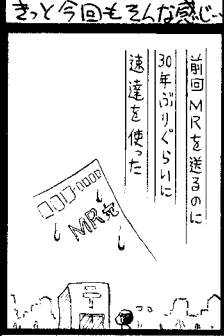 きっと今回もそんな感じ…
前回MRを送るのに
30年ぶりぐらいに
速達を使った
MR宛